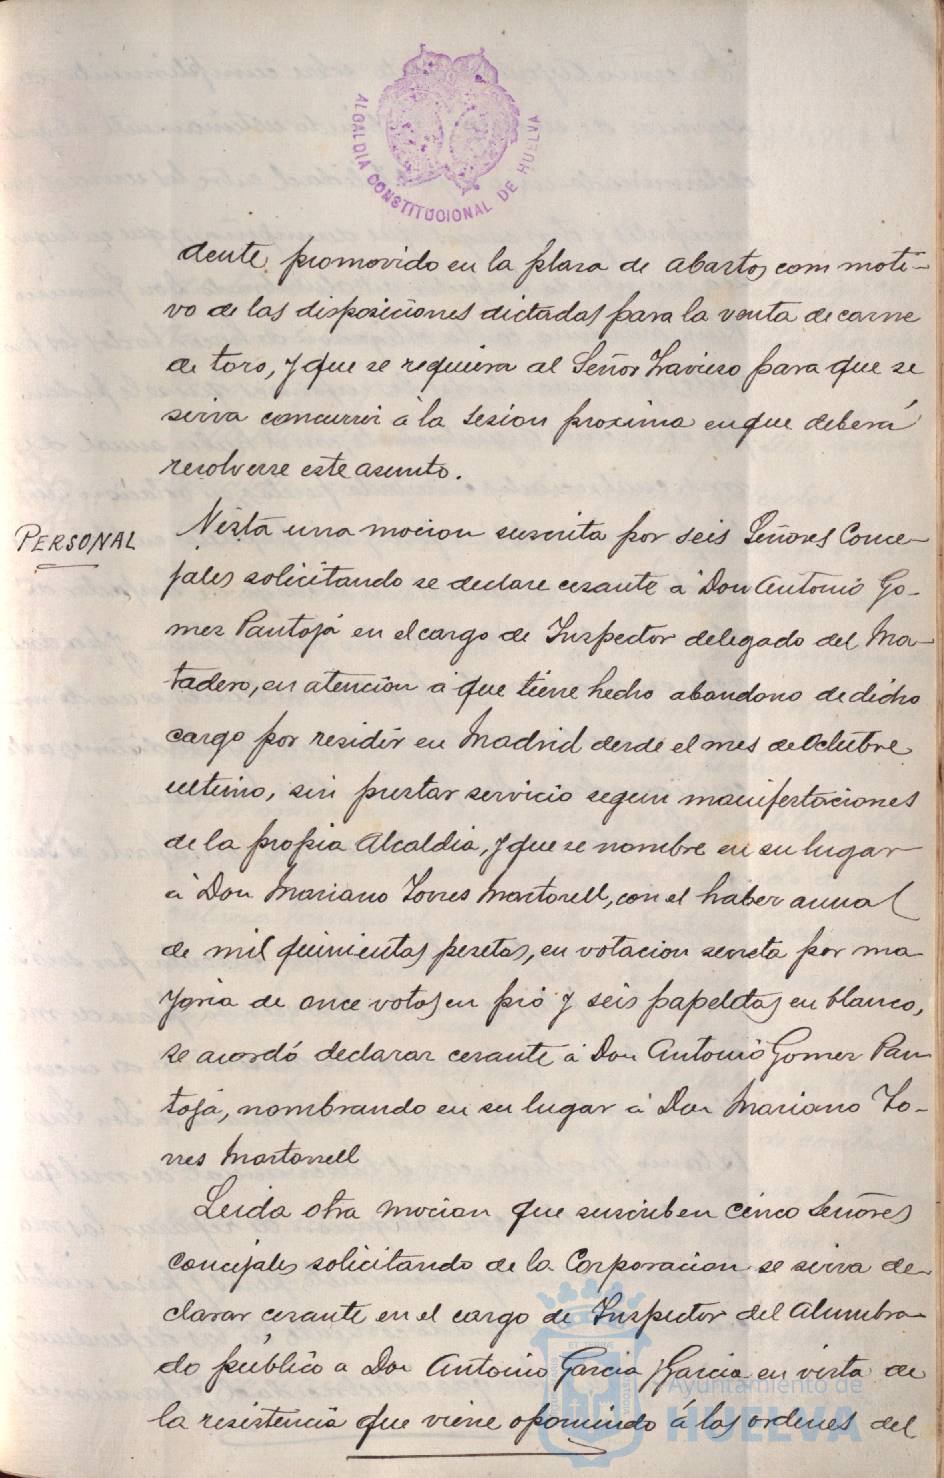 ALCALDIA CONSTITUCIONAL DE HUELVA
dente promovido en la plaza de abastos con moti-
vo de las disposiciones dictadas para la venta de carne
de toro, y que se requiera al Señor Travieso para que se
sirva concurrir á la sesion proxima en que deberá
resolverse este asunto.
PERSONAL
Vista una mocion suscrita por seis Señores Conce-
jales solicitando se declare cesante á Don Antonio Go-
mez Pantoja en el cargo de Inspector delegado del Ma-
tadero, en atencion á que tiene hecho abandono de dicho
cargo por residir en Madrid desde el mes de Octubre
ultimo, sin prestar servicio segun manifestaciones
de la propia Alcaldia, y que se nombre en su lugar
á Don Mariano Torres Martorell, con el haber annal
de mil quinientas pesetas, en votacion secreta por ma-
yoria de once votos en pró y seis papeletas en blanco,
se acordó declarar cesante á Don Antonio Gomez Pan
toja, nombrando en su lugar á Don Mariano To-
rres Martorrell
Leida otra mocion que suscriben cinco Señores
concejales solicitando de la Corporacion se sirva de-
clarar cesante en el cargo de Inspector del Alumbra-
do público a Don Antonio Garcia y Garcia en vista de
la resistencia que viene oponiendo á las ordenes del
Ayuntamiento de
HUELVA